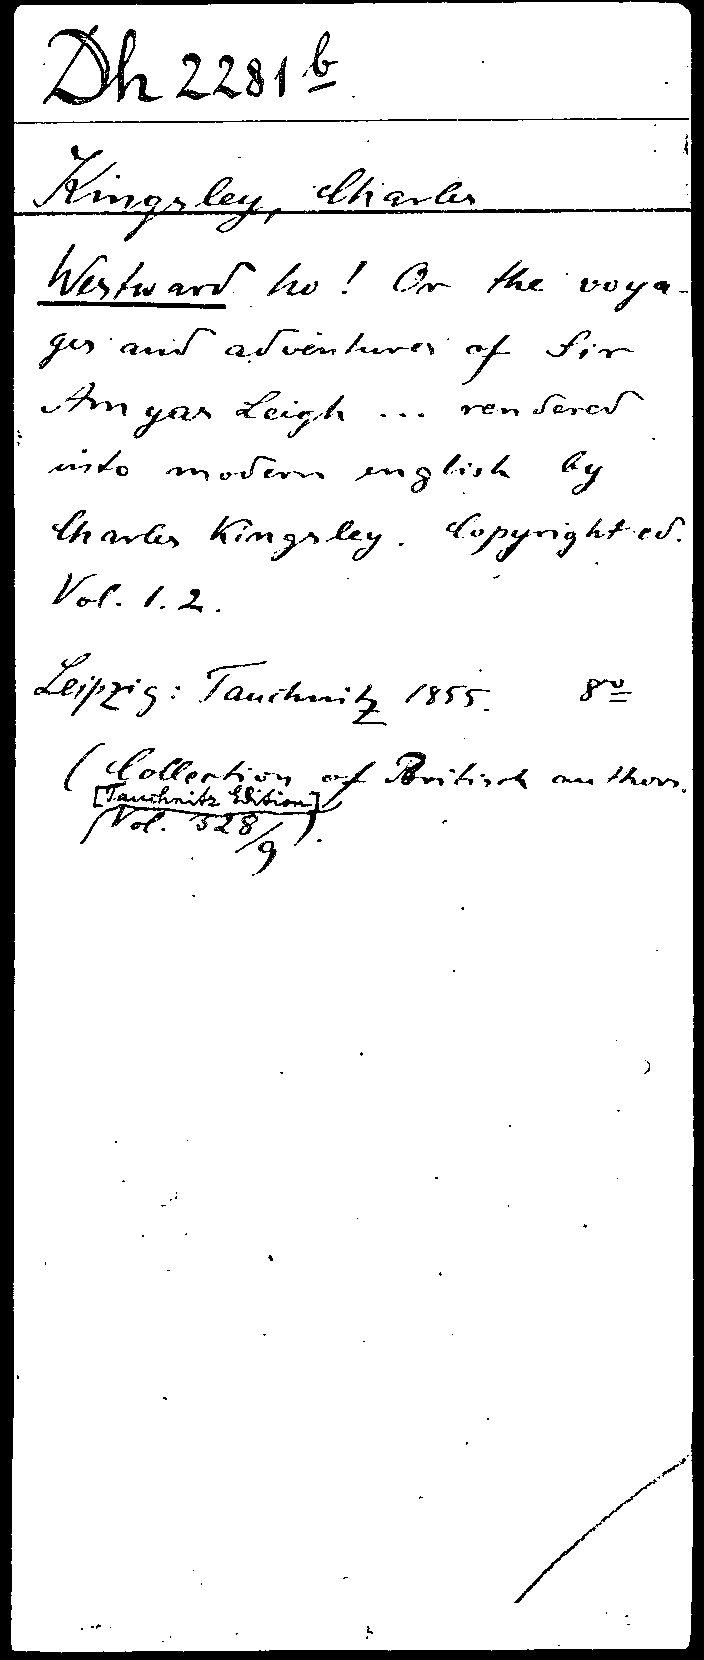 Dh 2281 b
Kingsley, Charles
Westward ho! Or the voya-
ges and adventures of Sir
Amyas Leigh ... rendered
into modern english by
Charles Kingsley. Copyright ed.
Vol. 1.2.
Leipzig: Tauchnitz 1855. 8º
(Collection of British authors.
[Tauchnitz Edition]
Vol. 328/9).